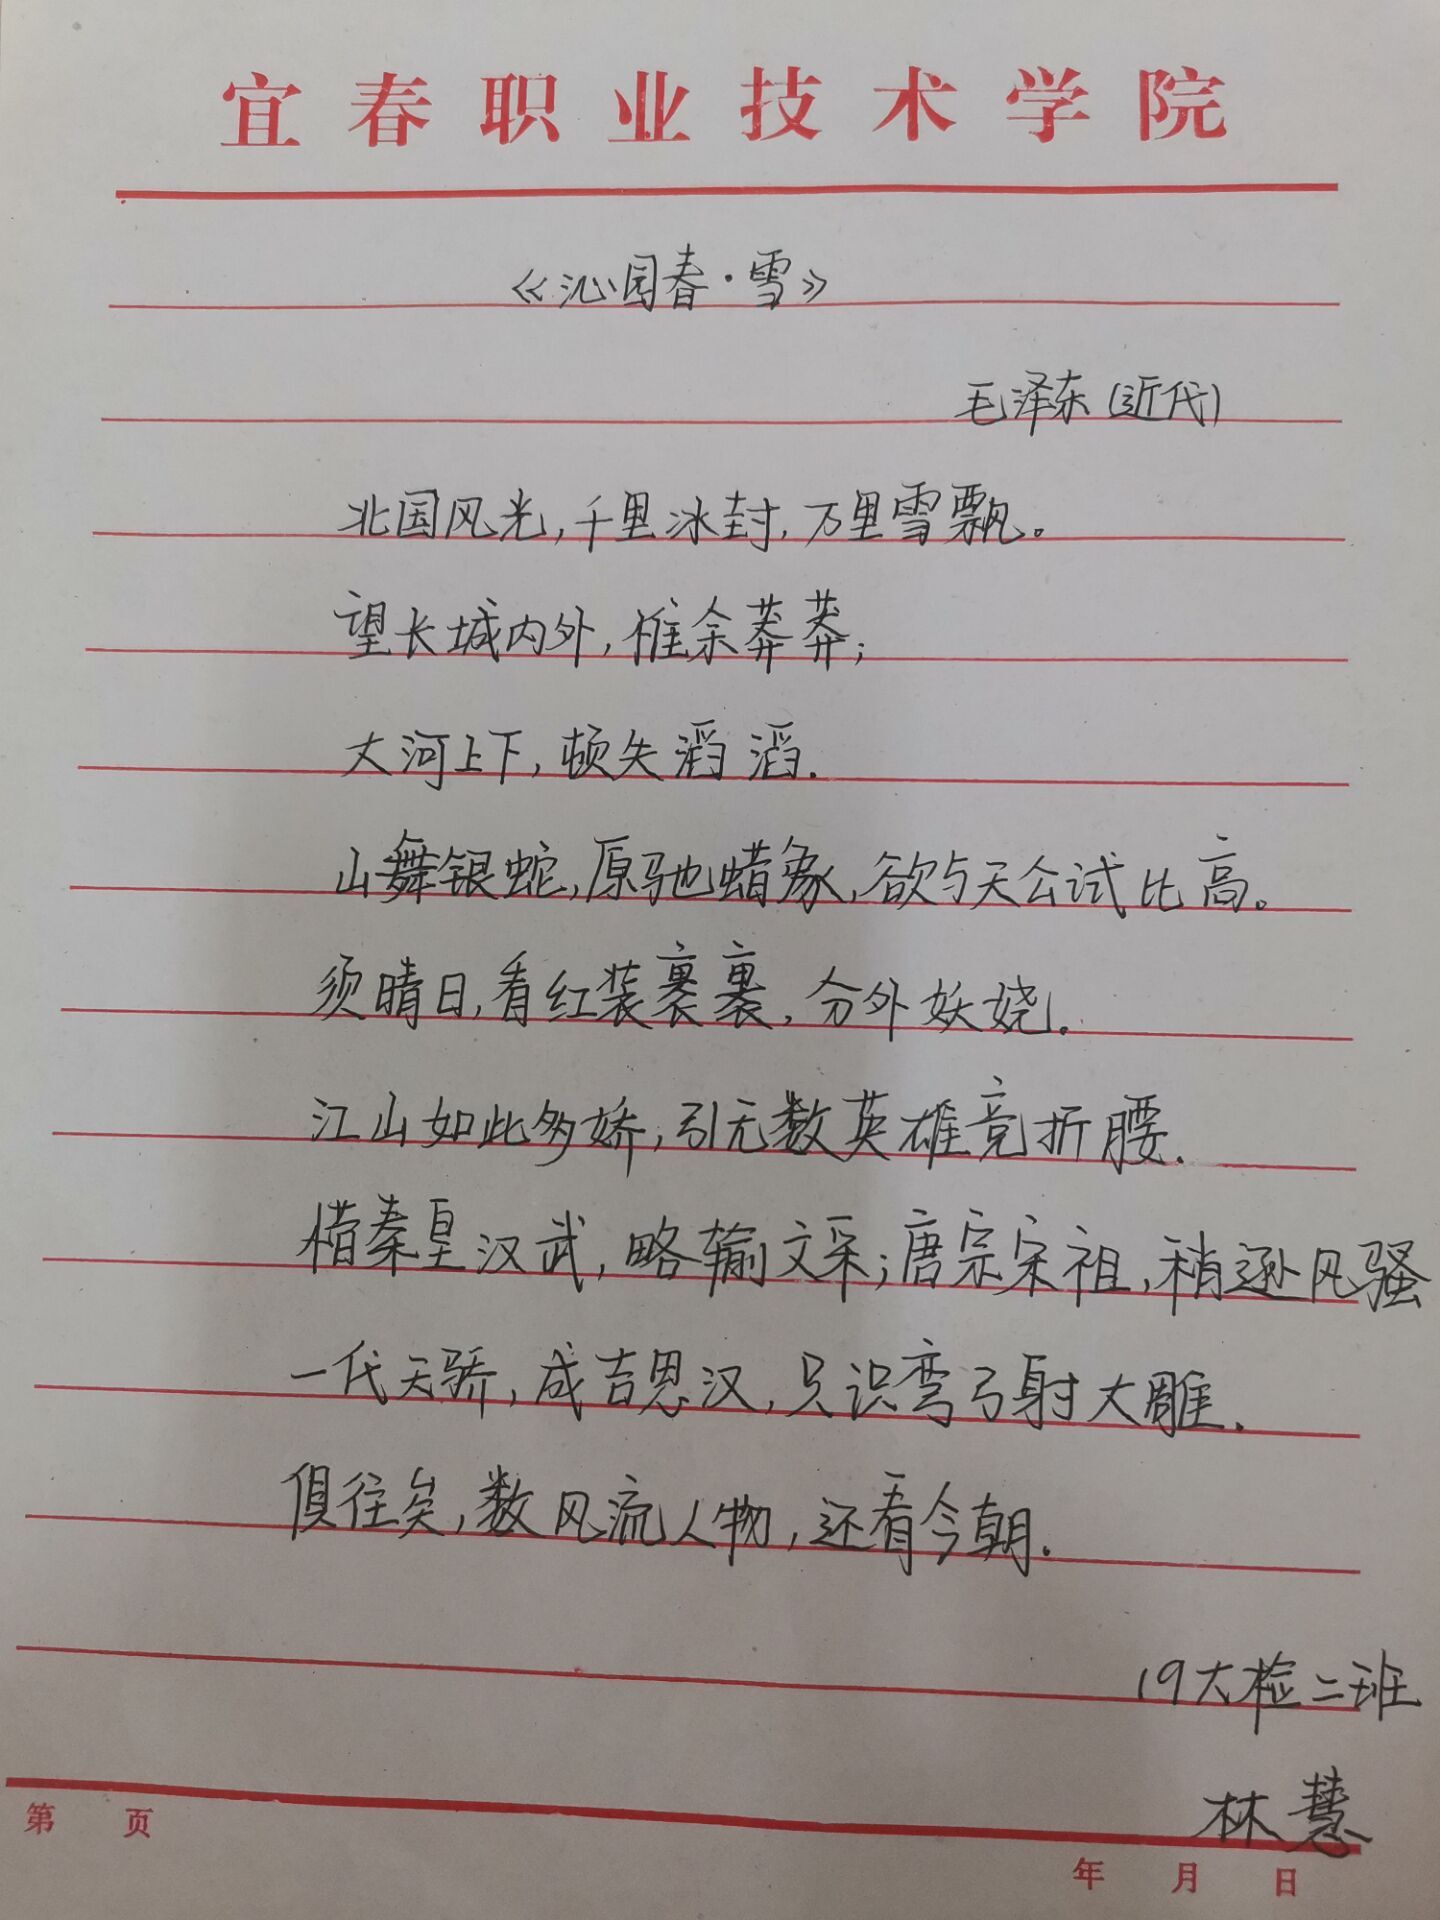 宜春职业技术学院
《沁园春·雪》
毛泽东(近代)
北国风光,千里冰封,万里雪飘。
望长城内外,惟余莽莽;
大河上下,顿失滔滔.
山舞银蛇,原驰蜡象,欲与天公试比高。
须晴日,看红装裹裹,分外妖娆.
江山如此多娇,引无数英雄竞折腰.
惜秦皇汉武,略输文采;唐宗宋祖,稍逊风骚
一代天骄,成吉思汉,只识弯弓射大雕.
俱往矣,数风流人物,还看今朝.
19大检二班
林慧
第 页
年 月 日